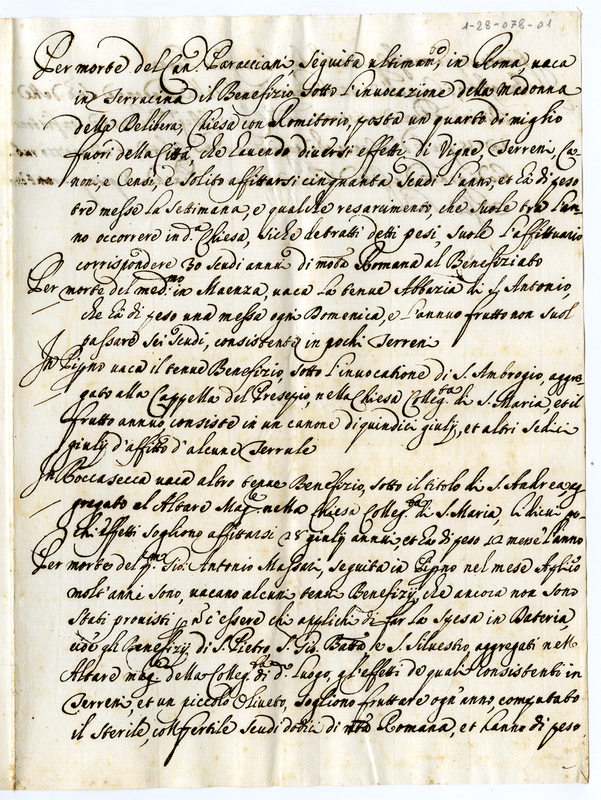 1-28-078-01
Per morte del Can.º Paracciani seguita ultimam.te in Roma, vaca
in Terracina il Benefizio sotto l'invocazione della Madonna
della Delibera, Chiesa con Romitorio, posta un quarto di miglio
fuori della Città, che havendo diversi effetti di Vigne, Terreni, Ca-
noni, e Censi, è solito affittarsi cinquanta scudi l'anno, et hà di peso
tre messe la settimana, e qualche resarcimento, che suole trà l'an-
no occorrere in d.ª Chiesa, siche detratti detti pesi, suole l'affittuario
corrispondere 30 scudi annui di mòta Romana al Benefiziato
Per morte del med.mo in Maenza, vaca la tenue Abbazia di S. Antonio,
che hà di peso una messa ogni Domenica, e l'annuo frutto non suol
passare sei scudi, consistente in pochi Terreni
In vaca il tenue Benefizio sotto l'invocatione di S. Ambrogio, aggre-
gato alla Cappella del Presepio, nella Chiesa Colleg.ta di S. Maria, et il
frutto annuo, consiste in un canone di quindici giulij, et altri sedici
giulij d'affitto d'alcune Terrule
In Roccasecca vaca altro tenue Benefizio, sotto il titolo di S. Andrea, ag
gregato al Altare Mag.re nella Chiesa Colleg.ta di S. Maria, li di cui po-
chi effetti sogliono affittarsi 28 giulij annui et hà di peso 12 messe l'anno
Per morte del q.m Gio: Antonio Massati, seguita in nel mese Aprile
molt'anni sono, vacano alcuni tenui Benefizij, che ancora non sono
stati provisti p. n. c'essere chi applichi di far la spesa in Dateria,
cioè gli Benefizij, di S. Pietro, S. Gio: Batta, e S. Silvestro, aggregati nell'
Altare mag.re della Colleg.ta di d.º Luogo, gl'effetti de quali consistenti in
Terreni et un piccolo Oliveto, sogliono fruttare ogn'anno computato
il sterile, col fertile scudi dodici di mòta Romana, et hanno di peso